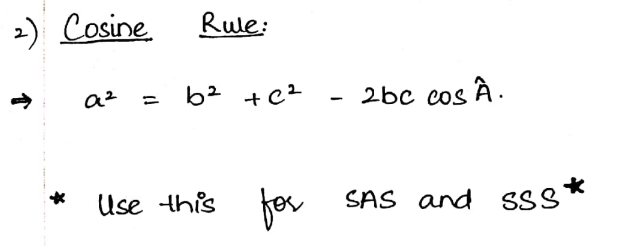 2) Cosine Rule:
→ a² = b² + c² - 2bc cos Â.
* Use this for SAS and SSS *